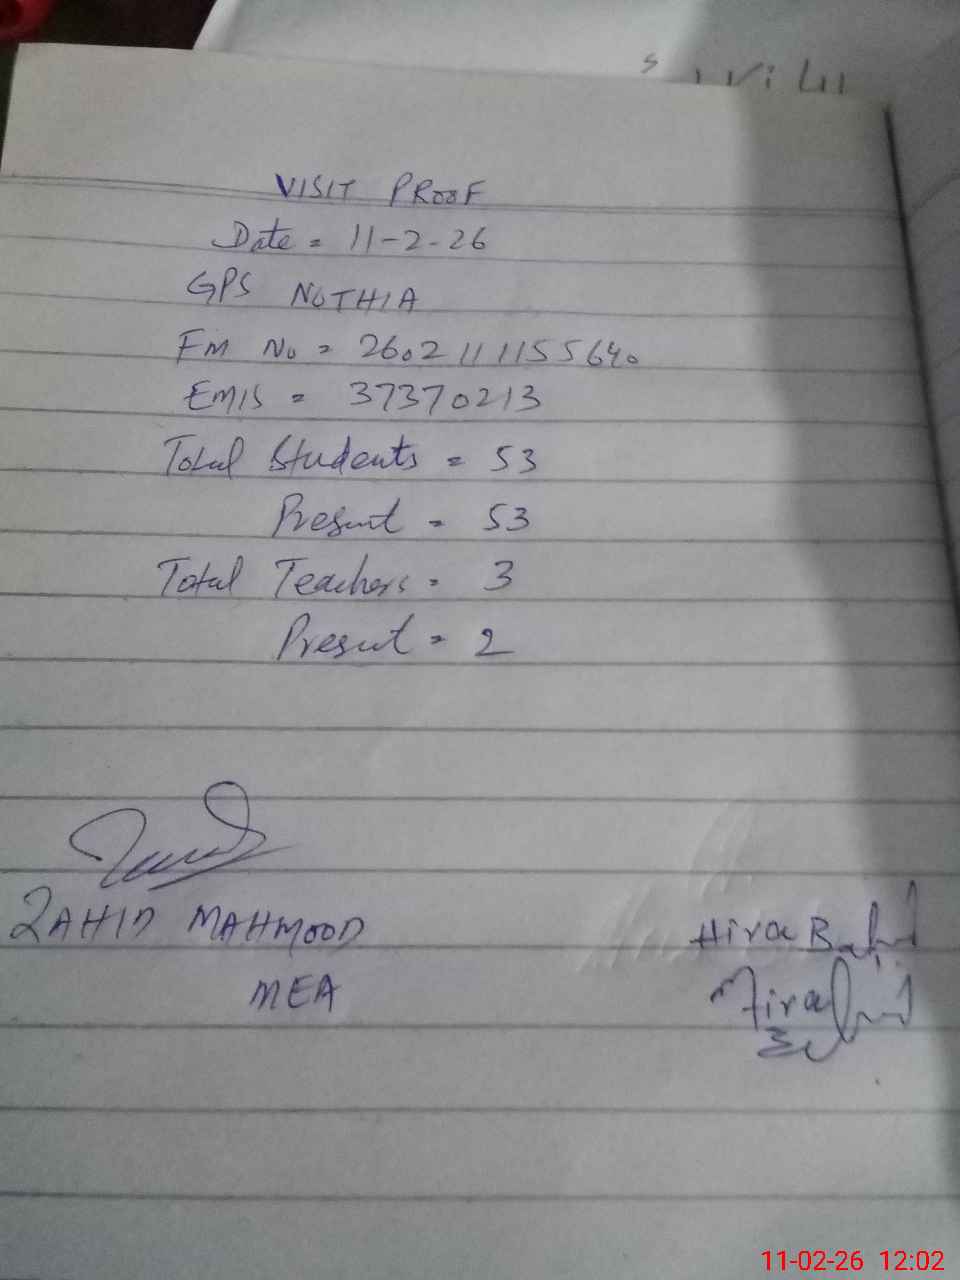 VISIT PROOF
Date = 11-2-26
GPS NOTHIA
FM No = 2602111155640
EMIS = 37370213
Total Students = 53
Present = 53
Total Teachers = 3
Present = 2
ZAHID MAHMOOD
MEA
Hira
Hira
11-02-26 12:02